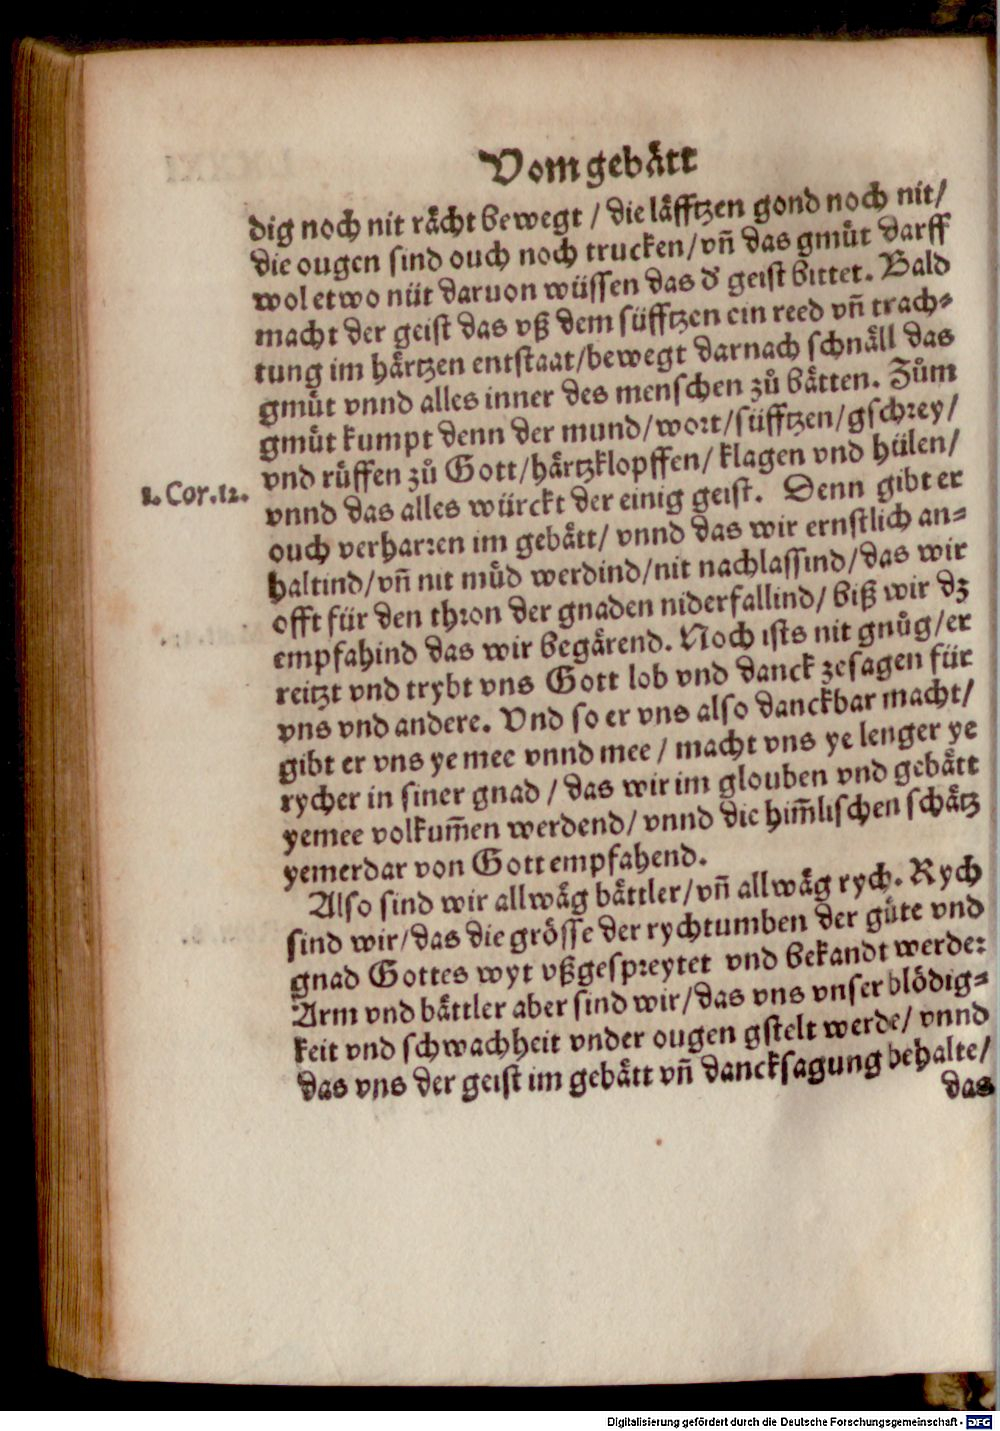 Vom gebaͤtt
dig noch nit raͤcht bewegt / die laͤfftzen gond noch nit/
die ougen sind ouch noch trucken/vñ das gmuͤt darff
wol etwo nüt daruon wüssen das d' geist bittet. Bald
macht der geist das vß dem süfftzen ein reed vñ trach⸗
tung im haͤrtzen entstaat/bewegt darnach schnaͤll das
gmuͤt vnnd alles inner des menschen zů baͤtten. Zům
gmuͤt kumpt denn der mund/wort/süfftzen/gschrey/
vnd ruͤffen zů Gott/haͤrtzklopffen/ klagen vnd hülen/
1. Cor. 12.
vnnd das alles würckt der einig geist. Denn gibt er
ouch verharren im gebaͤtt/ vnnd das wir ernstlich an⸗
haltind/vñ nit muͤd werdind/nit nachlassind/das wir
offt für den thron der gnaden niderfallind/ biß wir dz
empfahind das wir begaͤrend. Noch ists nit gnůg/er
reitzt vnd trybt vns Gott lob vnd danck zesagen für
vns vnd andere. Vnd so er vns also danckbar macht/
gibt er vns ye mee vnnd mee / macht vns ye lenger ye
rycher in siner gnad / das wir im glouben vnd gebaͤtt
yemee volkum̃en werdend/ vnnd die him̃lischen schaͤtz
yemerdar von Gott empfahend.
Also sind wir allwaͤg baͤttler/vñ allwaͤg rych. Rych
sind wir/das die groͤsse der rychtumben der guͤte vnd
gnad Gottes wyt vßgespreytet vnd bekandt werde:
Arm vnd baͤttler aber sind wir/das vns vnser bloͤdig⸗
keit vnd schwachheit vnder ougen gstelt werde/ vnnd
das vns der geist im gebaͤtt vñ dancksagung behalte/
das
Digitalisierung gefördert durch die Deutsche Forschungsgemeinschaft - DFG